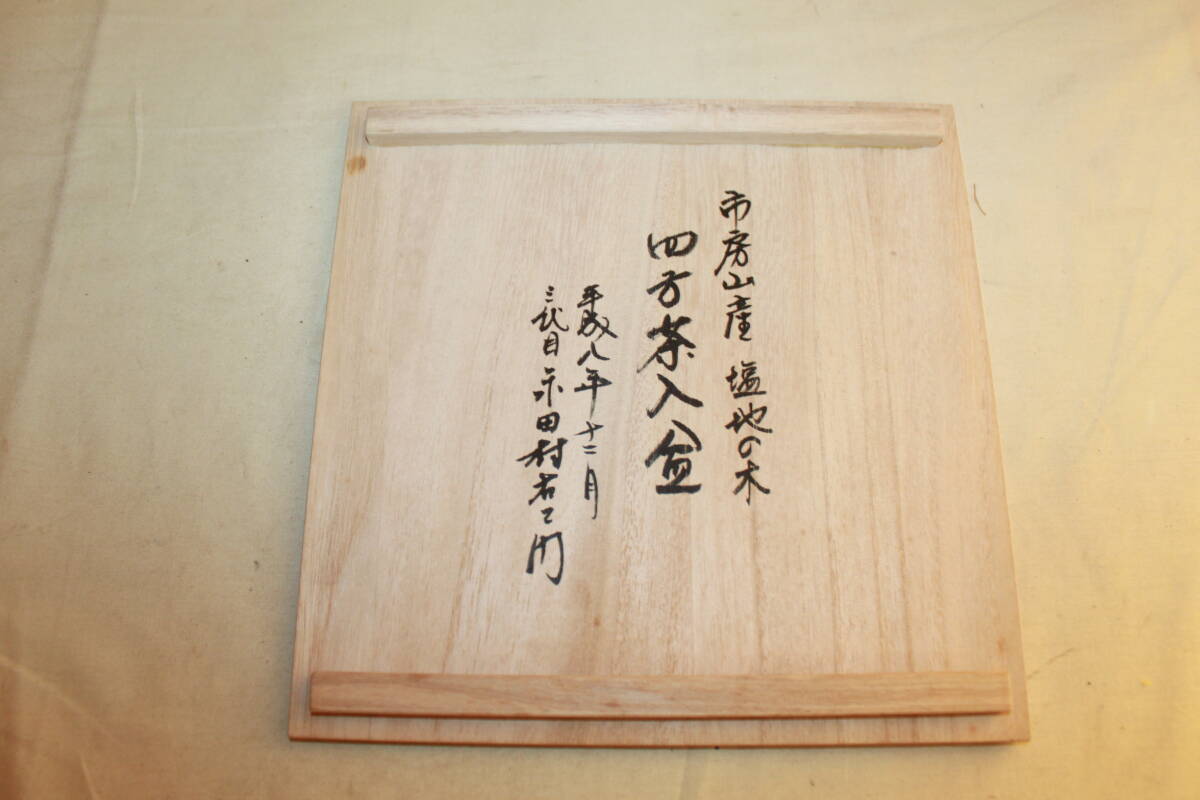 市房山産 塩地の木
四方茶入盆
平成八年十二月
三代目 田村右エ門